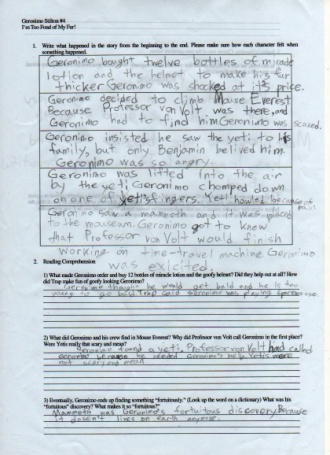 Geronimo Stilton #4
I'm Too Fond of My Fur!
1. Write what happened in the story from the beginning to the end. Please make sure how each character felt when
something happened.
Geronimo bought twelve bottles of miracle
lotion and the helmet to make his fur
thicker Geronimo was shocked at it's price.
Geronimo decided to climb Mouse Everest
Because Professor von Volt was there, and
Geronimo had to find him Geronimo was scared.
Geronimo insisted he saw the yeti to his
family, but only Benjamin belived him.
Geronimo was so angry.
Geronimo was lifted into the air
by the yeti Geronimo chomped down
on one of yeti's fingers. Yeti howled because of
pain
Geronimo saw a mammoth and it was placed
to the mouseum. Geronimo got to knew
that Professor von Volt would finish
working on time-travel machine Geronimo
was exicited.
2. Reading Comprehension
1) What made Geronimo order and buy 12 bottles of miracle lotion and the goofy helmet? Did they help out at all? How
did Trap make fun of goofy looking Geronimo?
Geronimo thought he would get bald and he is too
young to go bald Trap said Geronimo was playing
2) What did Geronimo and his crew find in Mouse Everest? Why did Professor von Volt call Geronimo in the first place?
Were Yetis really that scary and mean?
Geronimo found a yeti. Professor von Volt had called
Geronimo he needed Geronimo's help Yetis were
not scary and mean
3) Eventually, Geronimo ends up finding something "fortuitously." (Look up the word on a dictionary) What was his
"fortuitous" discovery? What makes it so "fortuitous?"
Mammoth was Geronimo's fortuitous discovery. Because
it doesn't lives on earth anymore.